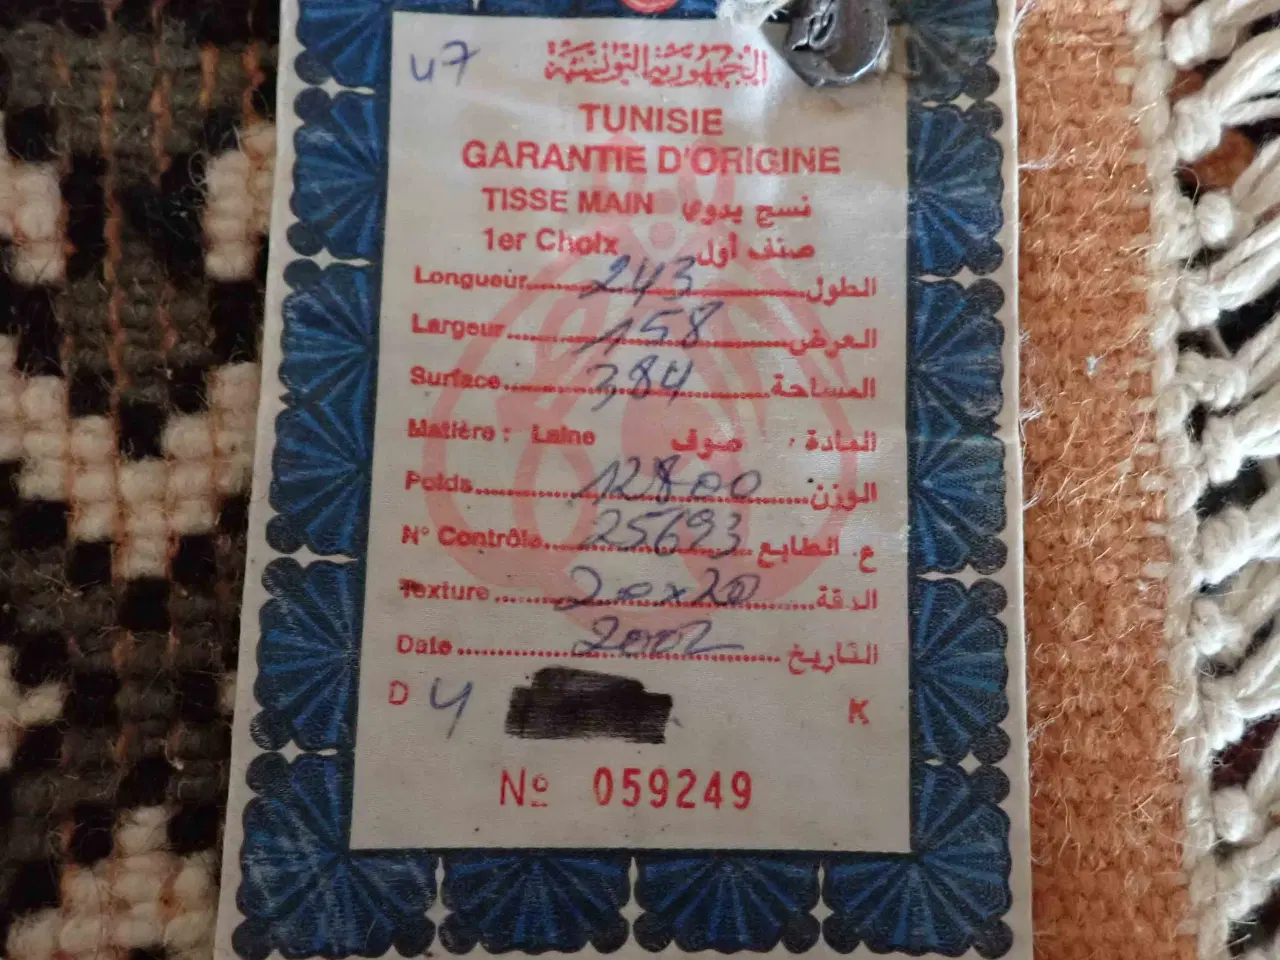 u7
الجمهورية التونسية
TUNISIE
GARANTIE D'ORIGINE
TISSE MAIN نسج يدوي
1er Choix صنف أول
Longueur 243 الطول
Largeur 158 العرض
Surface 384 المساحة
Matière : Laine المادة : صوف
Poids 12800 الوزن
N° Contrôle 25693 ع. الطابع
Texture 20x20 الدقة
Date 2002 التاريخ
D 4 K
Nº 059249